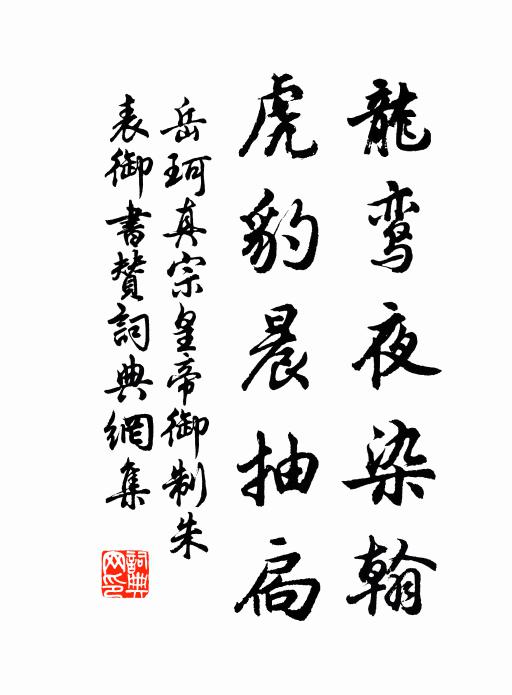 龍鸾夜染翰
虎豹晨抽扃
岳珂真宗皇帝御制朱
表御書贊詞典網集
詞典网印